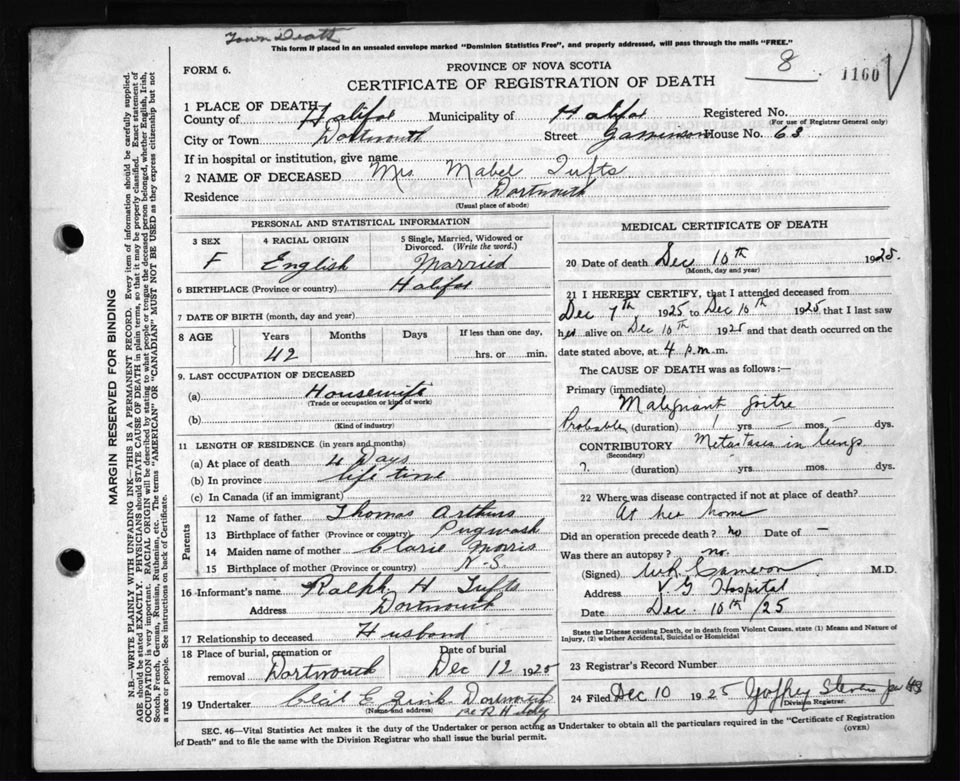 Town Death
This form if placed in an unsealed envelope marked "Dominion Statistics Free", and properly addressed, will pass through the mails "FREE."
FORM 6.
PROVINCE OF NOVA SCOTIA
8
1160
CERTIFICATE OF REGISTRATION OF DEATH
1 PLACE OF DEATH
County of Halifax Municipality of Halifax Registered No.
(For use of Registrar General only)
City or Town Dartmouth Street House No. 63
If in hospital or institution, give name
2 NAME OF DECEASED Mrs. Mabel Tufts
Residence Dartmouth
(Usual place of abode)
PERSONAL AND STATISTICAL INFORMATION
3 SEX F
4 RACIAL ORIGIN English
5 Single, Married, Widowed or Divorced. (Write the word.) Married
6 BIRTHPLACE (Province or country) Halifax
7 DATE OF BIRTH (month, day and year)
8 AGE Years Months Days If less than one day,
42 hrs. or min.
9. LAST OCCUPATION OF DECEASED
(a) Housewife
(Trade or occupation or kind of work)
(b)
(Kind of industry)
11 LENGTH OF RESIDENCE (in years and months)
(a) At place of death 4 Days
(b) In province life time
(c) In Canada (if an immigrant)
Parents
12 Name of father Thomas Arthurs
13 Birthplace of father (Province or country) Pugwash
14 Maiden name of mother Morris
15 Birthplace of mother (Province or country) N-S.
16 Informant's name Ralph H Tufts
Address Dartmouth
17 Relationship to deceased Husband
18 Place of burial, cremation or removal Dartmouth
Date of burial Dec 12 1925
19 Undertaker E Zink Dartmouth
(Name and address)
MEDICAL CERTIFICATE OF DEATH
20 Date of death Dec 10th 1925.
(Month, day and year)
21 I HEREBY CERTIFY, that I attended deceased from
Dec 7th 1925 to Dec 10th 1925 that I last saw
her alive on Dec 10th 1925 and that death occurred on the
date stated above, at 4 p.m. m.
The CAUSE OF DEATH was as follows:—
Primary (immediate)
Malignant goitre
Probable (duration) 1 yrs. – mos. – dys.
CONTRIBUTORY Metastases in lungs
(Secondary)
? (duration) yrs. mos. dys.
22 Where was disease contracted if not at place of death?
At her home
Did an operation precede death? no Date of –
Was there an autopsy? no.
(Signed) Cameron M.D.
Address V G Hospital
Date Dec. 10th/25
State the Disease causing Death, or in death from Violent Causes, state (1) Means and Nature of Injury, (2) whether Accidental, Suicidal or Homicidal
23 Registrar's Record Number
24 Filed Dec 10 1925 Stevens
Division Registrar.
SEC. 46—Vital Statistics Act makes it the duty of the Undertaker or person acting as Undertaker to obtain all the particulars required in the "Certificate of Registration
of Death" and to file the same with the Division Registrar who shall issue the burial permit.
(OVER)
MARGIN RESERVED FOR BINDING
N.B.—WRITE PLAINLY WITH UNFADING INK—THIS IS A PERMANENT RECORD. Every item of information should be carefully supplied.
AGE should be stated EXACTLY. PHYSICIANS should STATE CAUSE OF DEATH in plain terms, so that it may be properly classified. Exact statement of
OCCUPATION is very important. RACIAL ORIGIN will be described by stating to what people or tongue the deceased person belonged, whether English, Irish,
Scotch, French, German, Russian, Ruthenian, etc. The terms "AMERICAN" OR "CANADIAN" MUST NOT BE USED as they express citizenship but not
a race or people. See instructions on back of Certificate.